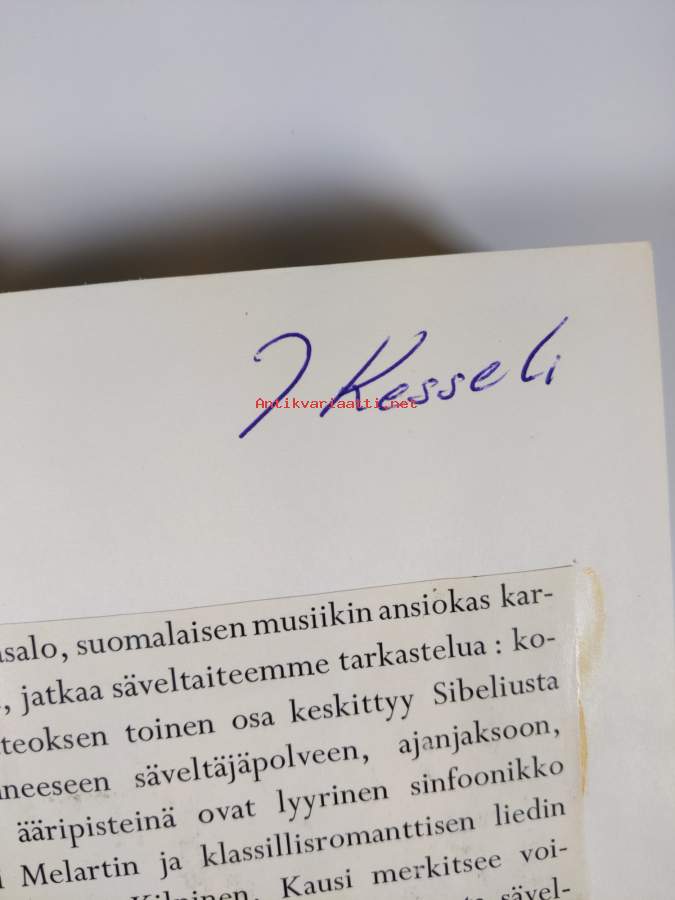 J Kesseli
Antikvariaatti.net
salo, suomalaisen musiikin ansiokas kar-
, jatkaa säveltaiteemme tarkastelua : ko-
teoksen toinen osa keskittyy Sibeliusta
neeseen säveltäjäpolveen, ajanjaksoon,
ääripisteinä ovat lyyrinen sinfoonikko
Melartin ja klassillisromanttisen liedin
Kilpinen. Kausi merkitsee voi-
sävel-